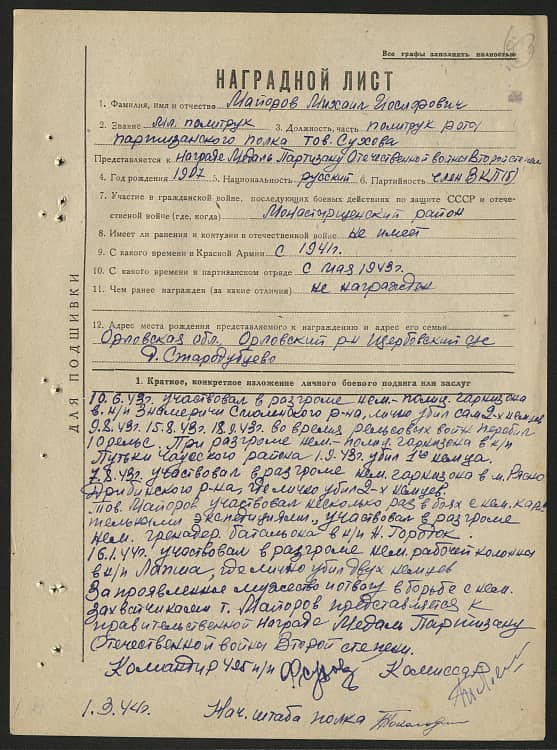 Все графы заполнить полностью
НАГРАДНОЙ ЛИСТ
1. Фамилия, имя и отчество Майоров Михаил Иосифович
2. Звание мл. политрук 3. Должность, часть политрук роты
партизанского полка тов. Сухова
Представляется к награде Медаль Партизану Отечественной войны Второй
4. Год рождения 1907 5. Национальность русский 6. Партийность член ВКП(б)
7. Участие в гражданской войне, последующих боевых действиях по защите СССР и отече-
ственной войне (где, когда) Монастырщенский район
8. Имеет ли ранения и контузии в отечественной войне не имеет
9. С какого времени в Красной Армии С 1941г.
10. С какого времени в партизанском отряде С мая 1943г.
11. Чем ранее награжден (за какие отличия) не награжден
12. Адрес места рождения представляемого к награждению и адрес его семьи
Орловская обл. Орловский р-н Щербовский с/с
д. Стародубцево
ДЛЯ ПОДШИВКИ
1. Краткое, конкретное изложение личного боевого подвига или заслуг
10.6.43г. участвовал в разгроме нем.-полиц. гарнизона
в н/п Смоленского р-на, лично убил сам 2-х немцев
9.8.43г. 15.8.43г. 18.9.43г. во время рельсовых войн перебил
10 рельс. При разгроме нем.-полиц. гарнизона в н/п
Путьки Чаусского района 1.9.43г. убил немца.
7.8.43г. участвовал в разгроме нем. гарнизона в м. Рясно
Дрибинского р-на, где лично убил 2-х немцев.
Тов. Майоров участвовал несколько раз в боях с нем. кара-
тельными экспедициями, участвовал в разгроме
нем. гренадер. батальона в н/п Н. Городок.
16.1.44г. участвовал в разгроме нем. рабочей колонны
в н/п где лично убил двух немцев
За проявленное мужество и отвагу в борьбе с нем.
захватчиками т. Майоров представляется к
правительственной награде Медаль Партизану
Отечественной войны Второй степени.
Командир п/п Комиссар
1.3.44г. Нач. штаба полка